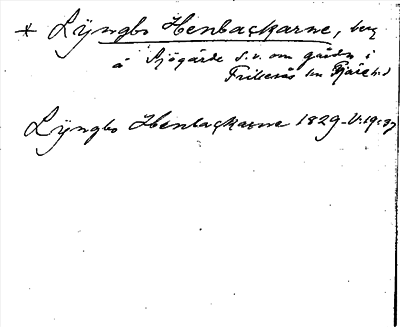 * Lÿngbo Henbackarne, berg
å Sjögärde S.v. om gården i
Frillesås sn Fjäre hd
Lÿngbo Henbackarne 1829-V:19:87